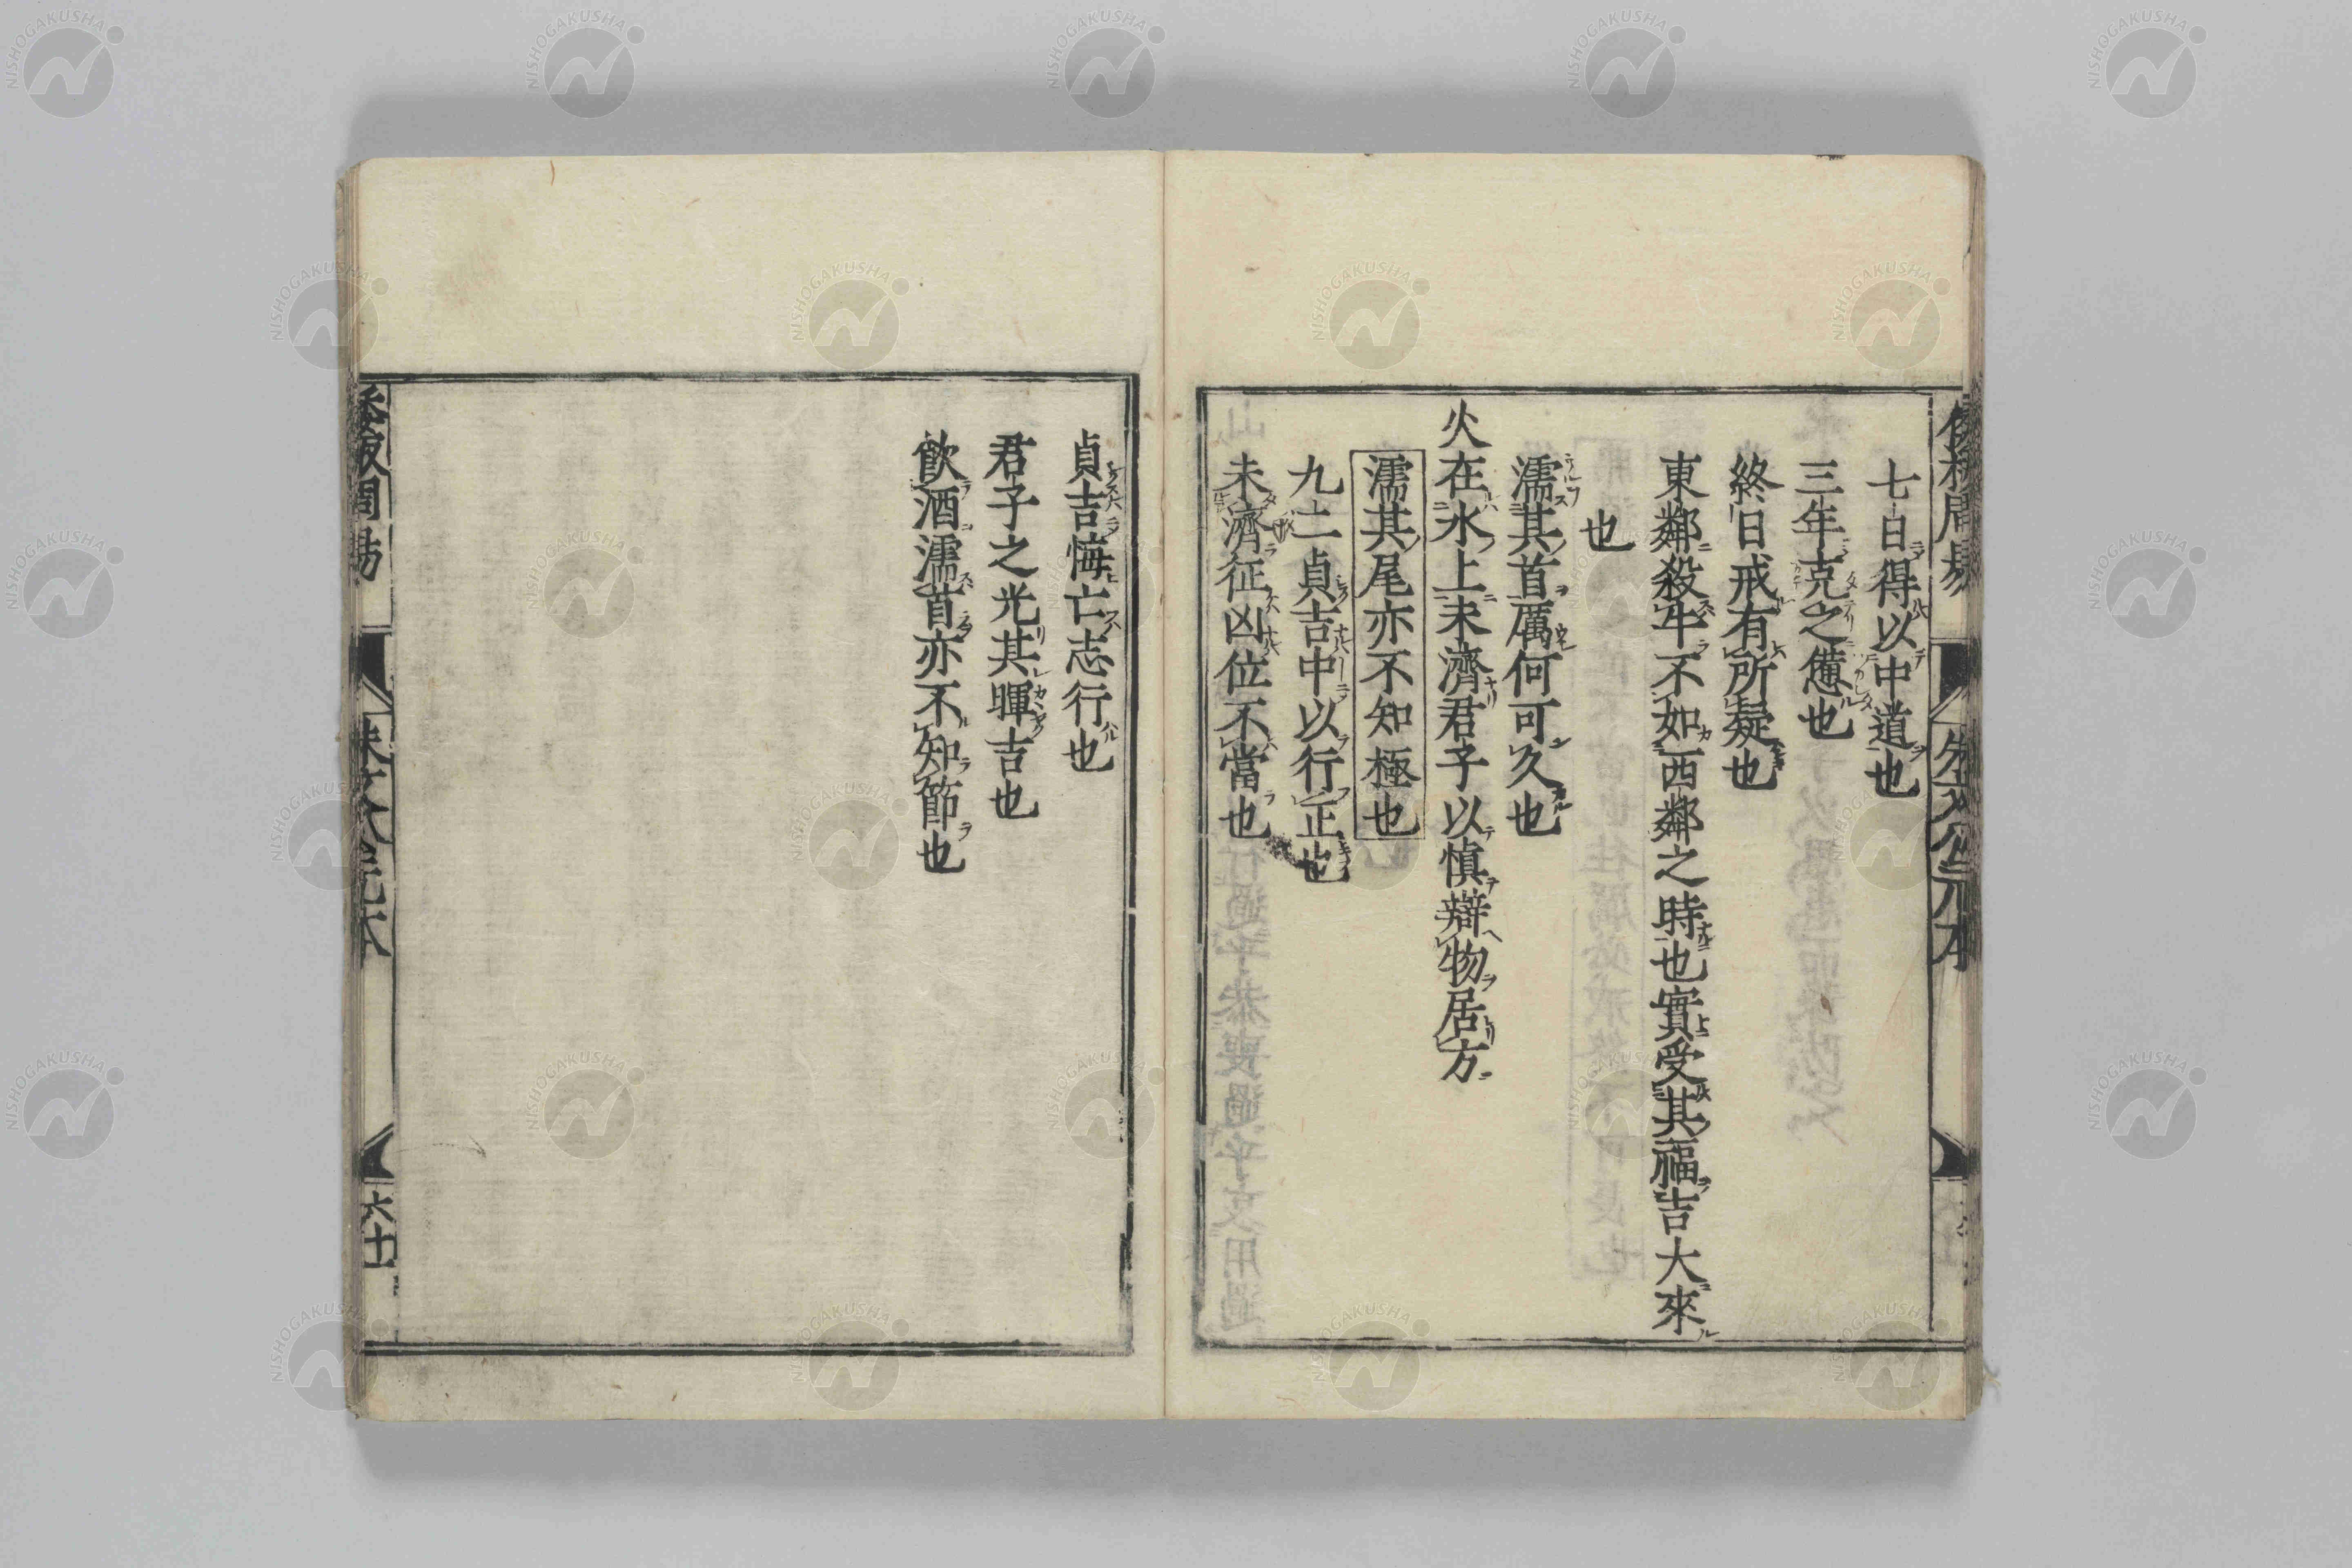 七日得以中道也
三年克之憊也
終日戒有所疑也
東鄰殺牛不如西鄰之時也實受其福吉大來
也
濡其首厲何可久也
火在水上未濟君子以慎辯物居方
濡其尾亦不知極也
九二貞吉中以行正也
未濟征凶位不當也
貞吉悔亡志行也
君子之光其暉吉也
飲酒濡首亦不知節也
六十
NISHOGAKUSHA